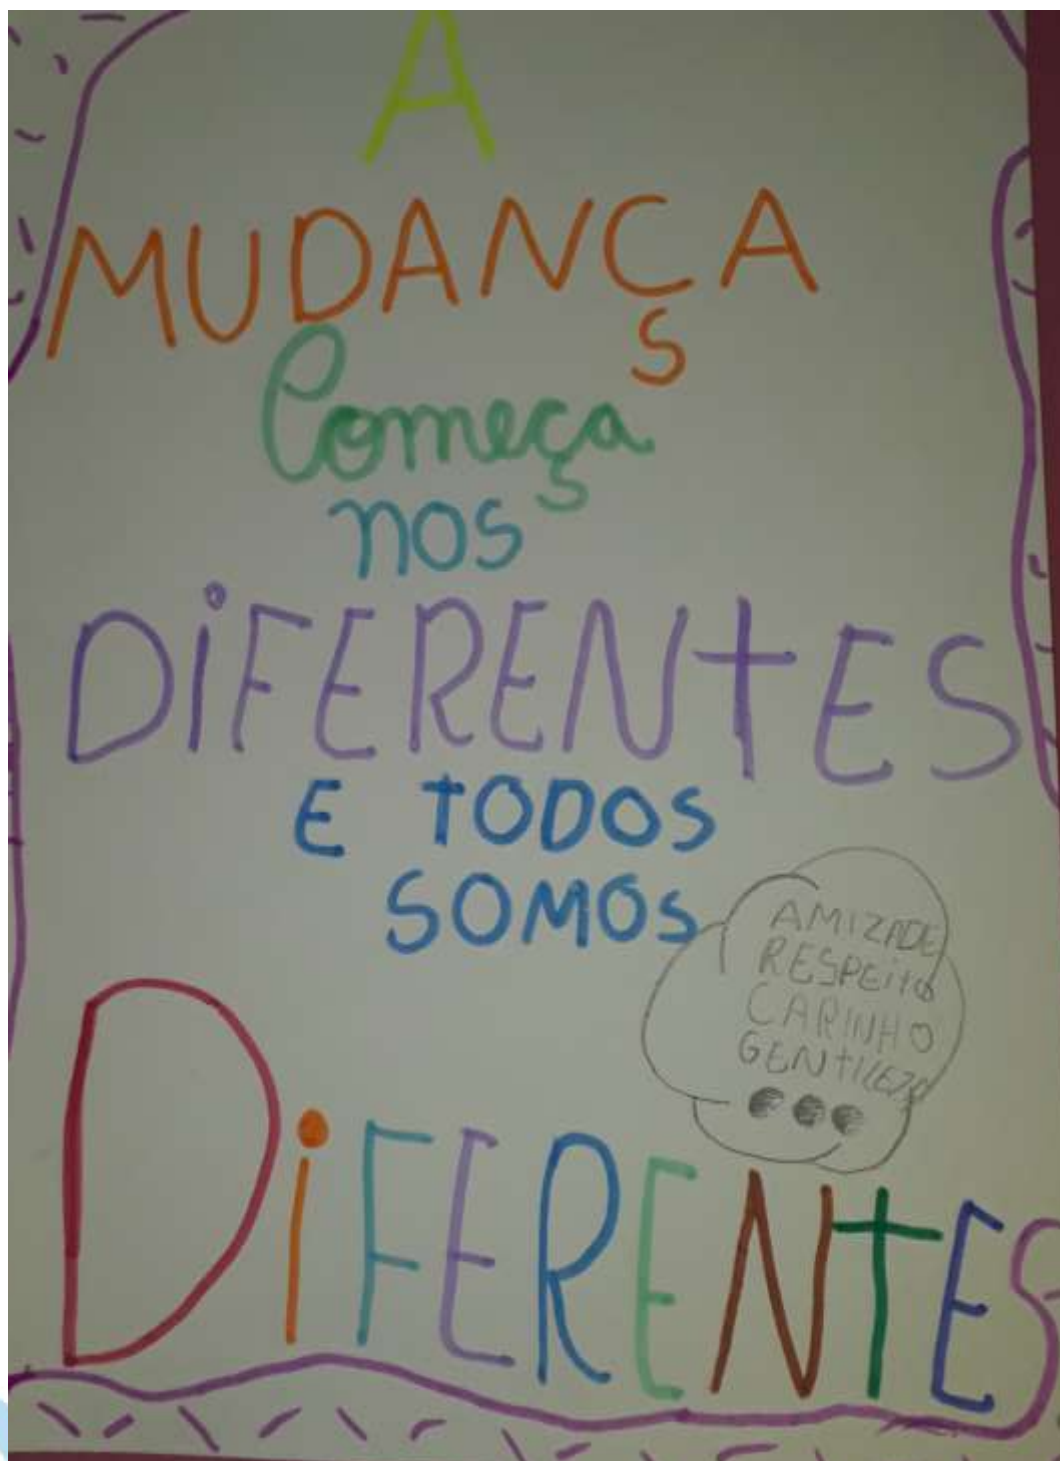 A
MUDANÇA
Começa
nos
DiFERENtES
E TODOS
SOMOS
AMIZADE
RESPEitO
CARINHO
GENtILEZA
DiFERENtES